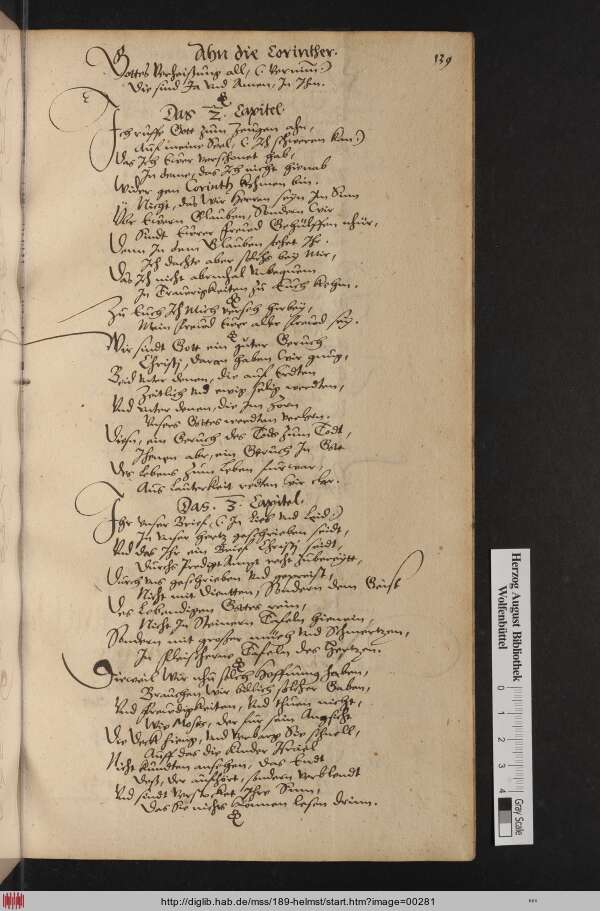 Ahn die Corinther.
139
Gottes Verheißung all,
Die sind Ja und Amen, In Ihm.
Das 2. Capitel.
Ich ruffe Gott zum Zeugen ahn,
Auf meine Seel, Ich schweren kan
Das Ich Ewer verschonet hab,
In deme, das Ich nicht hinab
Wider gen Corinth kohmen bin.
Nicht, das wir Herren seyn Im Sinn
Vbr Ewern Glauben, Sondern wir
Sindt Ewrer Freud Gehülffen
Denn In dem Glauben stehet Ihr.
Ich dachte aber solchs bey Mir,
Das Ich nicht abermhal
In Traurigkeiten zu Euch kehm.
Zu Euch Ich Mich versich herbey,
Mein Freud Ewr aller Freud sey.
Wir sindt Gott ein guter Geruch
Christj, daran haben wir gnug,
Beid unter denen, die auf Erdten
Zeitlich und ewig selig werdten,
Und unter denen, die Im Zorn
Unsers Gottes werdten verlorn.
Diesen, ein Geruch des Tods zum Todt,
Ihenen aber, ein Geruch In Gott
Des Lebens zum Leben fürwar,
Aus Lauterkeit redten wir clar.
Das. 3. Capitel.
Ihr unser Brief, In Lieb und Leid
In unser Hertz geschrieben seidt,
Und das Ihr ein Brief Christj seidt,
Durchs Predigt Ampt recht zubereitt,
Durch uns geschrieben und gepreist,
Nicht mit Dintten, Sondern dem Geist
Des Lebendigen Gottes rein,
Nicht In Steinern Tafeln hinein,
Sondern mit grosser müeh und Schmertzen,
In fleischerne Tafeln des Hertzen.
Dieweil Wir nhun solch Hoffnung haben,
Brauchen wir billich solcher Gaben,
Und Freudigkeiten, Und thuen nicht,
Wie Moses, der für sein Angsicht
Die Deck hieng, Und verbarg Sie schnell,
Auff das die kinder Israel
Nicht kundten ansehen, das Endt
Dess, der aufhört, sondern verblendt
Und sindt verstocket Ihre Sinn,
Das Sie nichts können lesen drinn.
Herzog August Bibliothek
Wolfenbüttel
0 1 2 3 4
Gray Scale
http://diglib.hab.de/mss/189-helmst/start.htm?image=00281